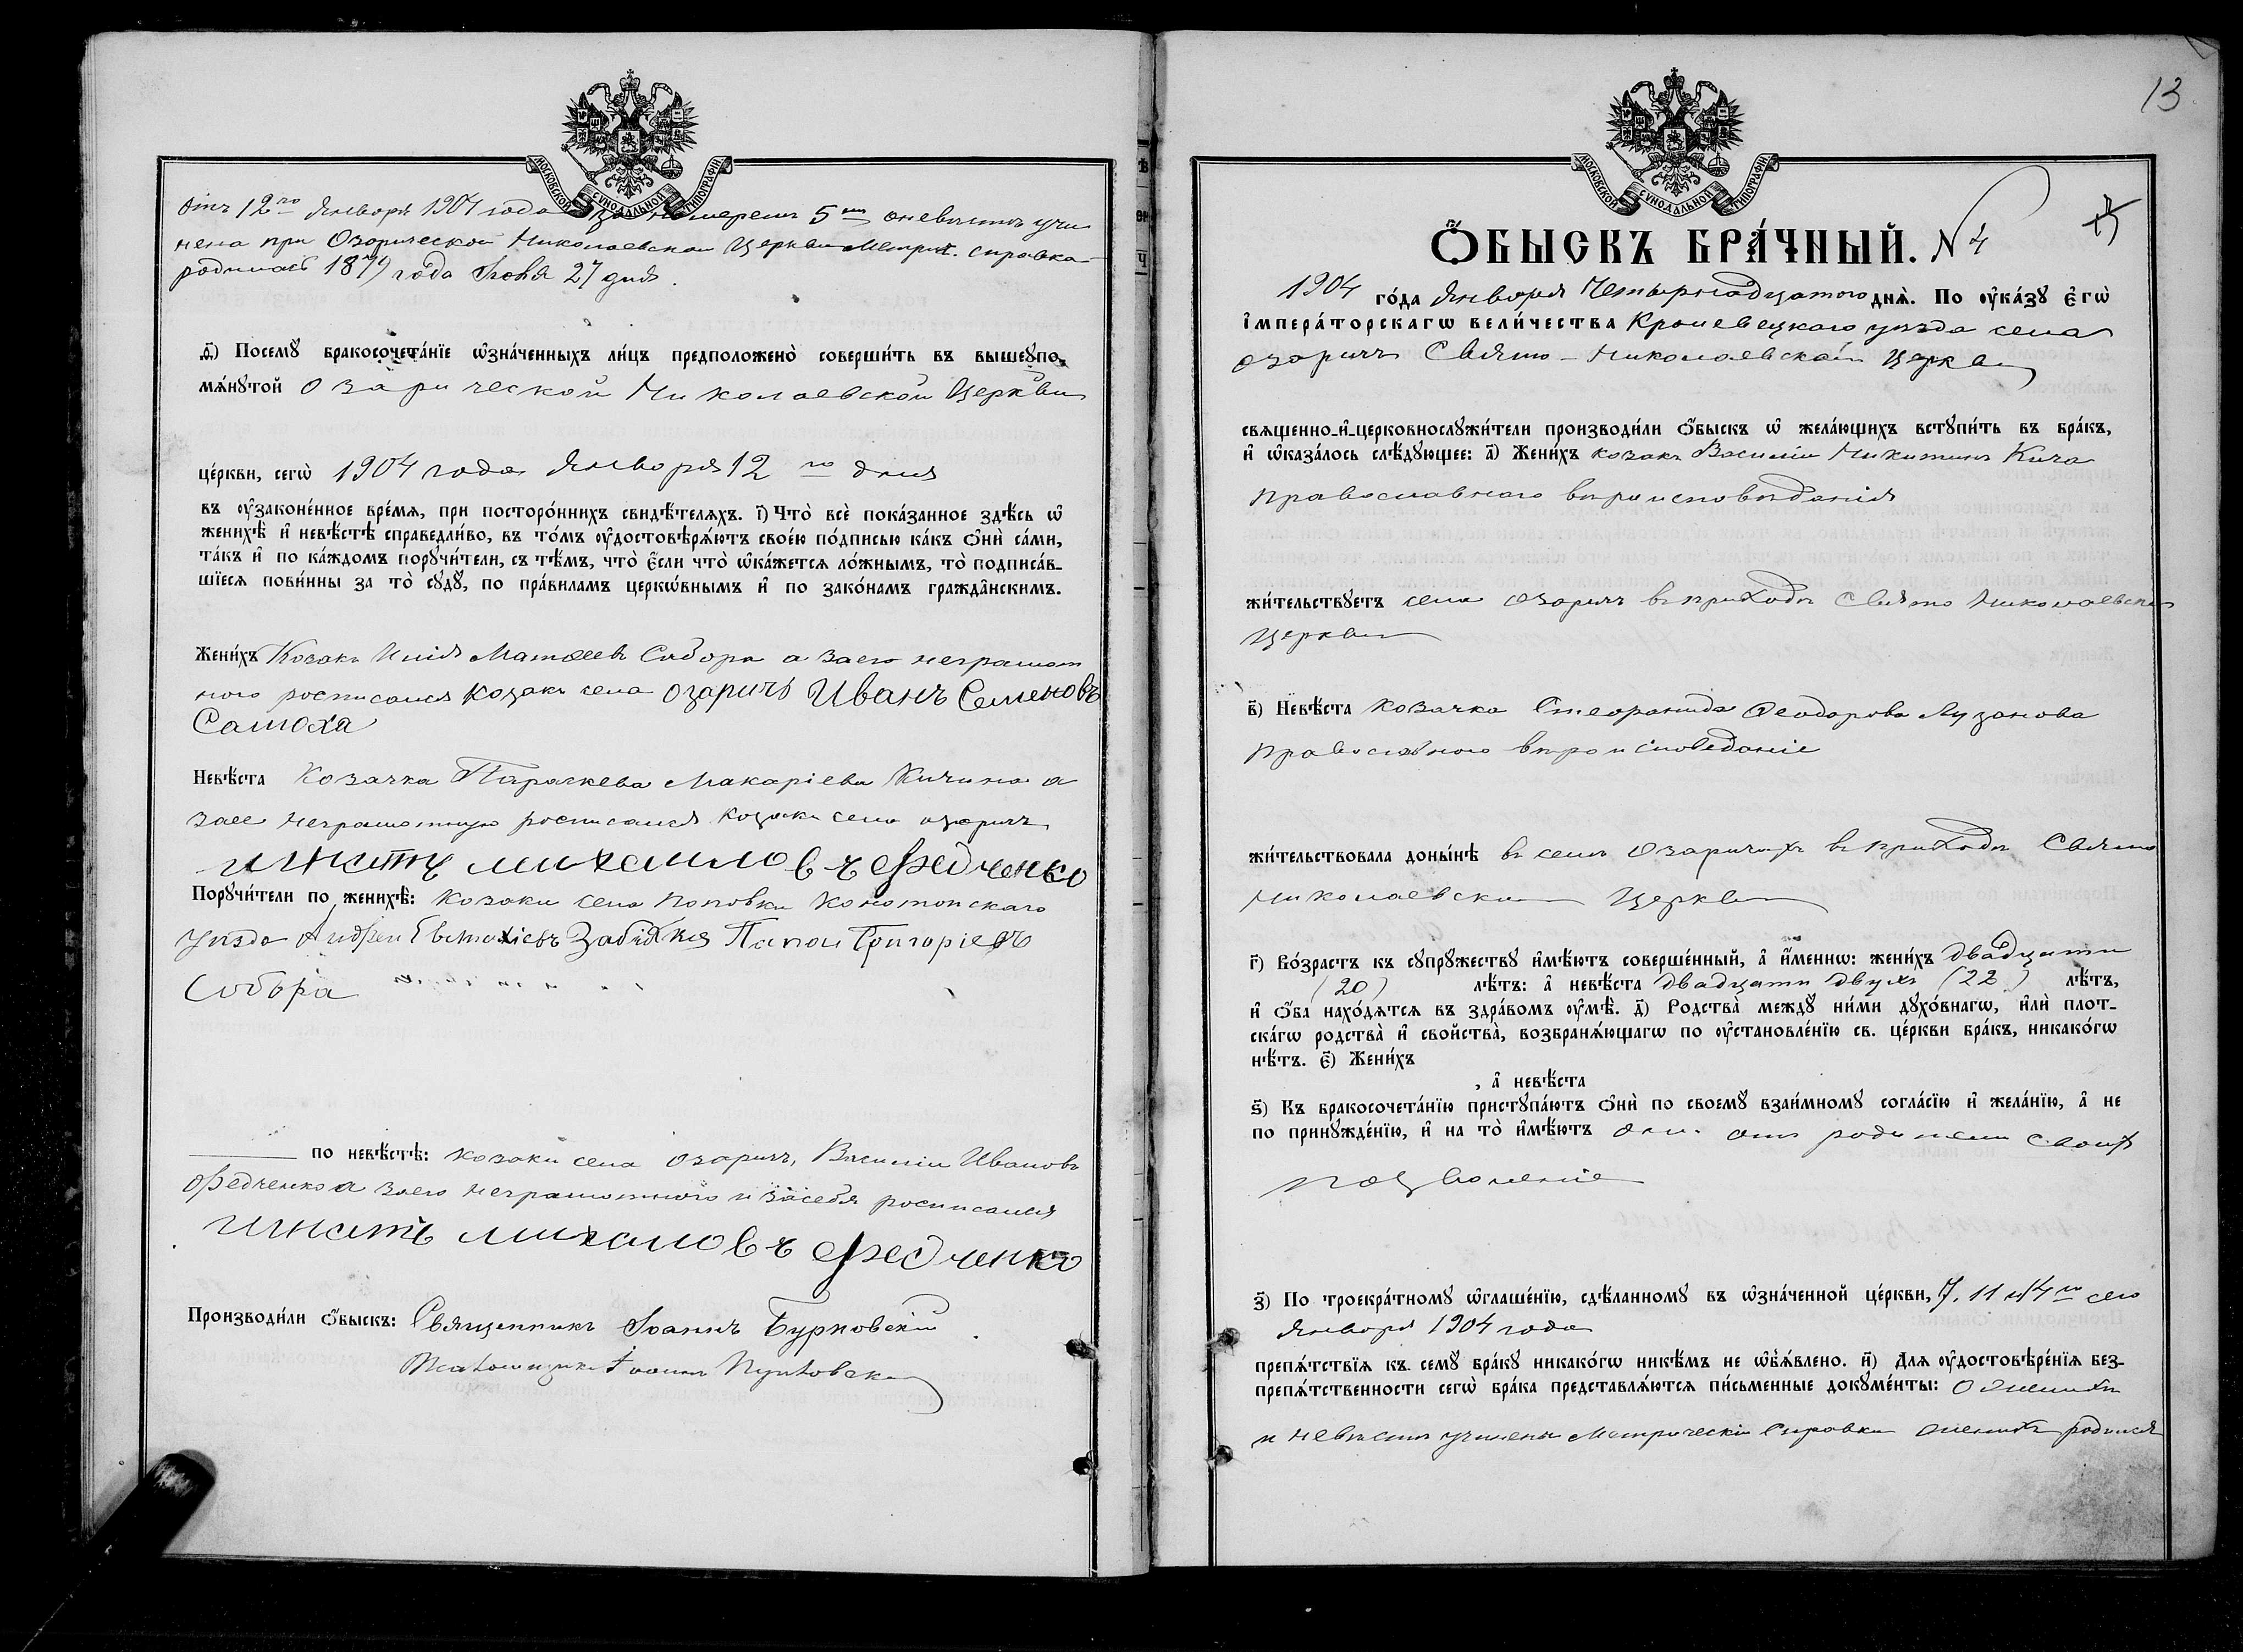 МОСКОВСКОЙ СУНОДАЛЬНОЙ ТИПОГРАФІИ
отъ 12го Января 1904 года за номеромъ 5мъ о невѣстѣ учи
нена при Озарической Николаевской Церкви Метрич. справка
родилась года 27 дня.
ѳ҃) Посемꙋ̀ бракосочета́нїе ѡ҆зна́ченныхъ ли́цъ предположено̀ соверши́ть въ вышеꙋпо-
мѧ́нꙋтой Озарической Николаевской Церкви
це́ркви, сегѡ̀ 1904 года Января 12го дня
въ ᲂу҆законе́нное вре́мѧ, при посторо́ннихъ свидѣ́телѧхъ. і҃) Что̀ всѐ пока́занное здѣ́сь ѡ҆
женихѣ̀ и҆ невѣ́стѣ справедли́во, въ то́мъ ᲂу҆достовѣрѧ́ютъ свое́ю по́дписью ка́къ ѻ҆нѝ са́ми,
та́къ и҆ по ка́ждомъ порꙋчи́тели, съ тѣ́мъ, что̀ є҆́сли что̀ ѡ҆ка́жетсѧ ло́жнымъ, то̀ подписа́в-
шїесѧ пови́нны за то̀ сꙋдꙋ̀, по пра́виламъ церкѡ́внымъ и҆ по зако́намъ гражда́нскимъ.
Жени́хъ Козакъ Илія Матѳеевъ Собора а за его неграмот
ного росписался козакъ села Озаричъ Иванъ Семеновъ
Самоха
Невѣ́ста Козачка Параскева Макаріева Кичина а
за ее неграмотную росписался козакъ села Озаричъ
Игнатъ Михаиловъ Федченко
Порꙋчи́тели по женихѣ̀: козаки села Поповки Конотопскаго
Уѣзда Андрей Евстахіевъ Григоріевъ
Собора
по невѣ́стѣ: козаки села Озаричъ, Василій Ивановъ
Федченко а за его неграмотного и за себя росписался
Игнатъ Михаловъ Федченко
Производи́ли ѻ҆́быскъ: Священникъ Іоаннъ Бурковскій
13
МОСКОВСКОЙ СУНОДАЛЬНОЙ ТИПОГРАФІИ
Ѻ҆́БЫСКЪ БРА́ЧНЫЙ. N 4
1904 го́да Января Четырнадцатого днѧ̀. По ᲂу҆ка́зꙋ є҆гѡ̀
і҆мпера́торскагѡ вели́чества Кролевецкаго уѣзда села
Озаричъ Свято-Николаевской Церкви
свѧщенно-и҆-церковнослꙋжи́тели производи́ли ѻ҆́быскъ ѡ҆ жела́ющихъ вступи́ть въ бра́къ,
и҆ ѡ҆каза́лось слѣ́дꙋющее: а҃) Жени́хъ козакъ Василій Никитинъ Кича
православнаго вѣроисповѣданія
жи́тельствꙋетъ села Озаричъ въ приходѣ Свято Николаевской
Церкви
в҃) Невѣ́ста козачка Стефанида Ѳеодорова Лузанова
православного вѣроисповеданіе
жи́тельствовала доны́нѣ въ селѣ Озаричахъ въ приходѣ Свято
Николаевской Церкви
г҃) Во́зрастъ къ сꙋпрꙋ́жествꙋ и҆мѣ́ютъ соверше́нный, а҆ и҆́меннѡ: жени́хъ двадцати
(20) лѣ́тъ: а҆ невѣ́ста двадцати двухъ (22) лѣ́тъ,
и҆ ѻ҆́ба нахо́дѧтсѧ въ здра́вомъ ᲂу҆мѣ̀. д҃) Родства̀ междꙋ̀ ни́ми дꙋхо́внагѡ, и҆лѝ плот-
ска́гѡ родства̀ и҆ свойства̀, возбранѧ́ющагѡ по ᲂу҆становле́нїю св. це́ркви бра́къ, никако́гѡ
нѣ́тъ. є҃) Жени́хъ
, а҆ невѣ́ста
ѕ҃) Къ бракосочета́нїю пристꙋпа́ютъ ѻ҆нѝ по своемꙋ̀ взаи́мномꙋ согла́сїю и҆ жела́нїю, а҆ не
по принꙋжде́нїю, и҆ на то̀ и҆мѣ́ютъ отъ родителей своихъ
позволеніе
з҃) По троекра́тномꙋ ѡ҆глаше́нїю, сдѣ́ланномꙋ въ ѡ҆зна́ченной це́ркви, 7, 11 и 14го сего
Января 1904 года
препѧ́тствїѧ къ семꙋ̀ бра́кꙋ никако́гѡ никѣ́мъ не ѡ҆б̾ѧ́влено. и҃) Длѧ ᲂу҆достовѣре́нїѧ без-
препѧ́тственности сегѡ̀ бра́ка представлѧ́ютсѧ пи́сьменные докꙋме́нты: О женихѣ
и невѣстѣ учинены Метрическіе Справки женихъ родился